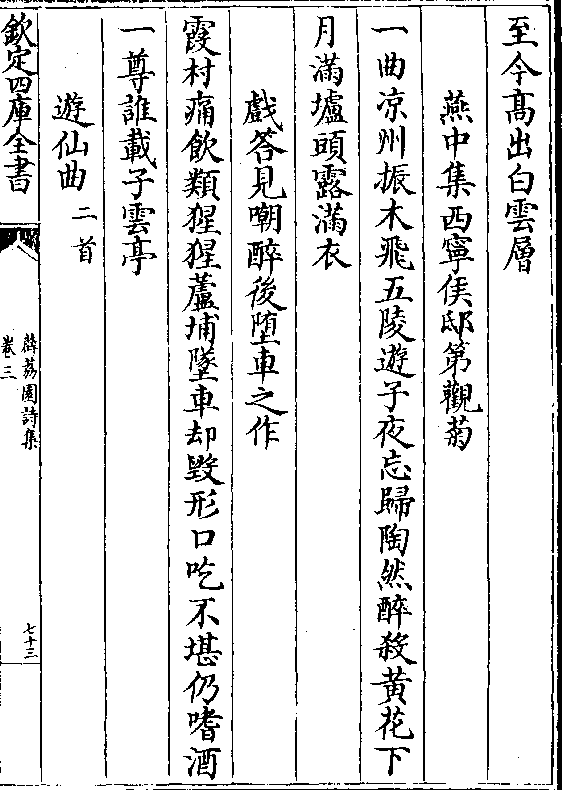 至今髙出白雲層
燕中集西寧侯邸第觀菊
一曲凉州振木飛五陵遊子夜忘歸陶然醉殺黃花下
月滿壚頭露滿衣
戲答見嘲醉後堕車之作
霞村痛飲類猩猩蘆埔墜車却毀形口吃不堪仍嗜酒
一尊誰載子雲亭
遊仙曲二首
欽定四庫全書
薜荔園詩集
卷三
七十三